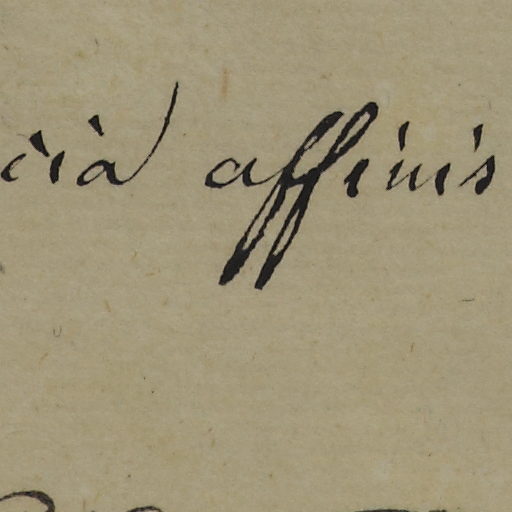 cia affinis